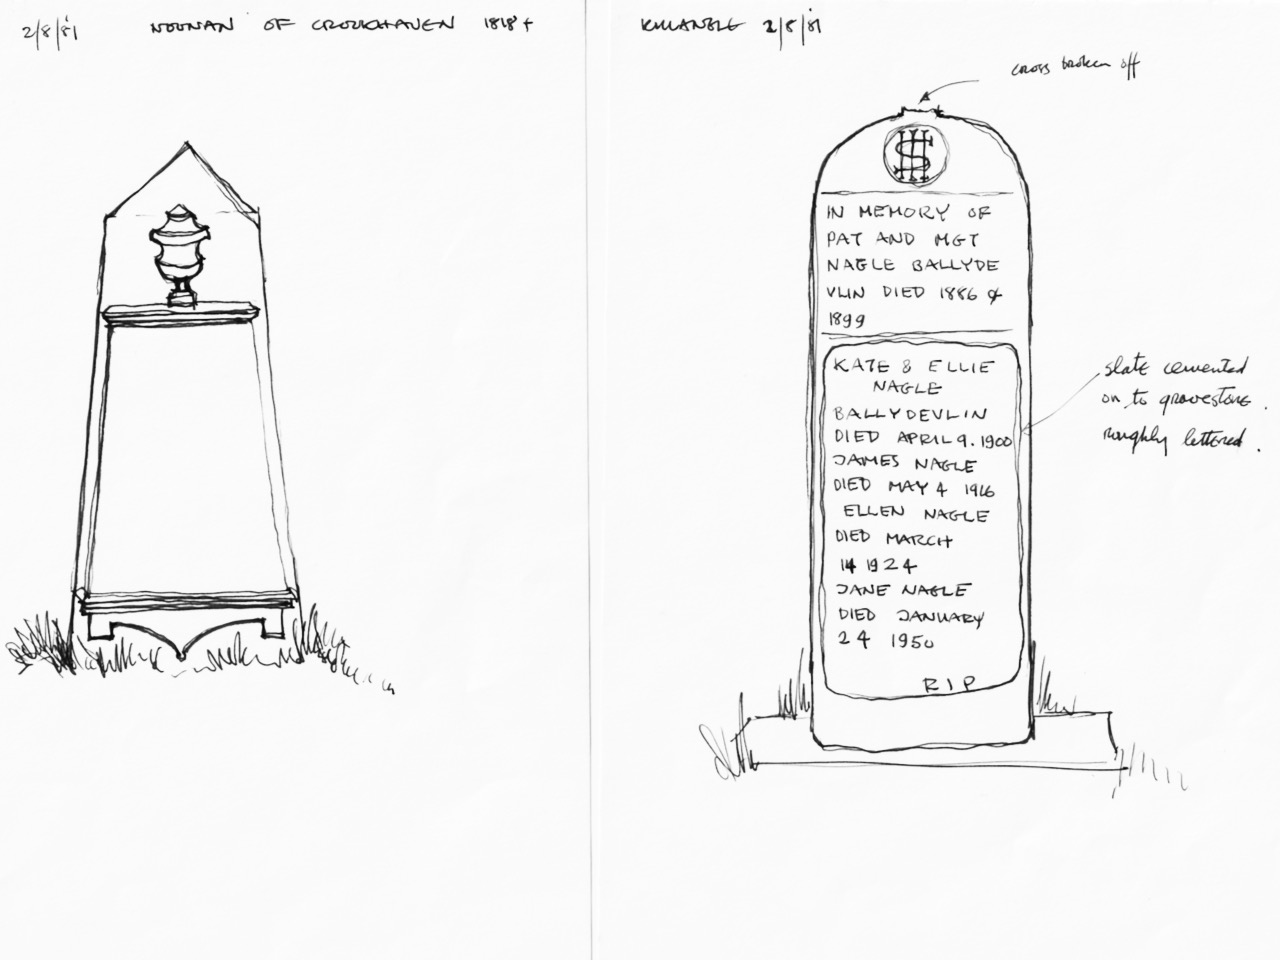 2/8/81 NOONAN OF CROOKHAVEN 1818 +
KILLANGLE 2/8/81
cross broken off
IHS
IN MEMORY OF
PAT AND MGT
NAGLE BALLYDE
VLIN DIED 1886 &
1899
KATE & ELLIE
NAGLE
BALLYDEVLIN
DIED APRIL 9. 1900
JAMES NAGLE
DIED MAY 4 1916
ELLEN NAGLE
DIED MARCH
14 1924
JANE NAGLE
DIED JANUARY
24 1950
RIP
slate cemented
on to gravestone.
roughly lettered.